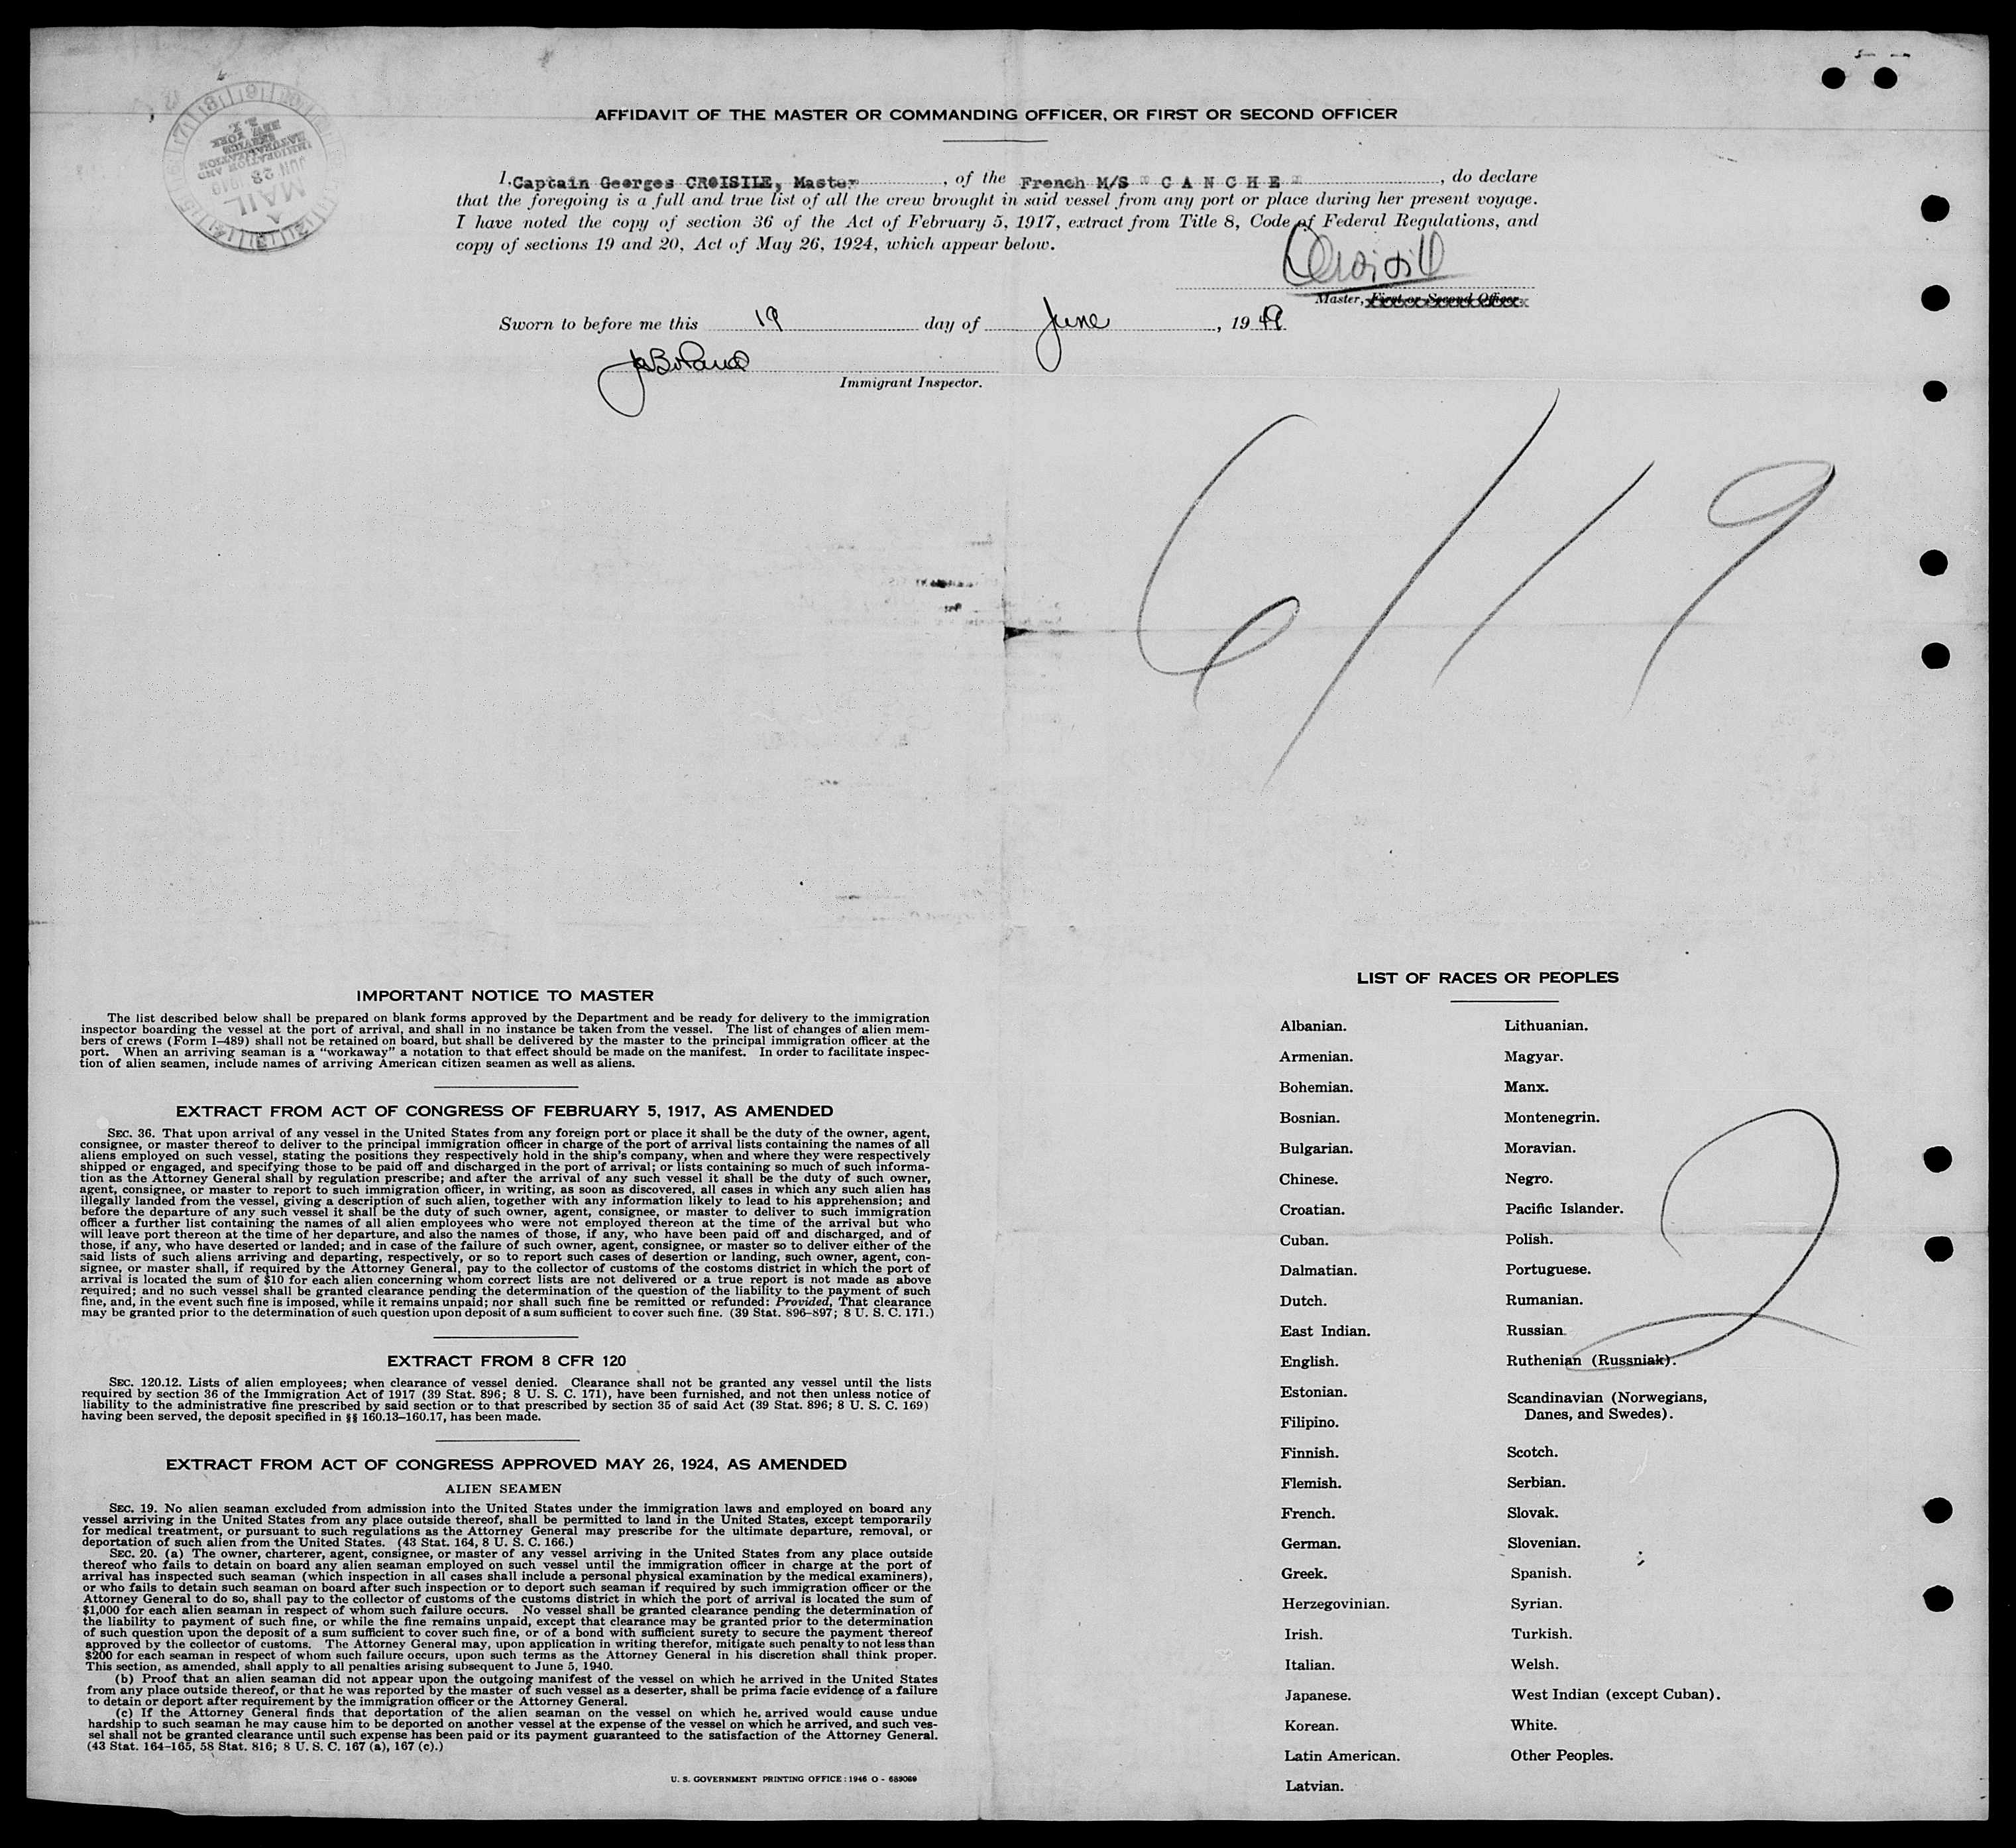 MAIL
JUN 23 1949
IMMIGRATION AND
NATURALIZATION
SERVICE
NEW YORK
N. Y.
AFFIDAVIT OF THE MASTER OR COMMANDING OFFICER, OR FIRST OR SECOND OFFICER
I, Captain Georges CROISILE, Master, of the French M/S " C A N C H E ", do declare
that the foregoing is a full and true list of all the crew brought in said vessel from any port or place during her present voyage.
I have noted the copy of section 36 of the Act of February 5, 1917, extract from Title 8, Code of Federal Regulations, and
copy of sections 19 and 20, Act of May 26, 1924, which appear below.
Croisile
Master, First or Second Officer.
Sworn to before me this 19 day of June, 1949
Immigrant Inspector.
6/19
IMPORTANT NOTICE TO MASTER
The list described below shall be prepared on blank forms approved by the Department and be ready for delivery to the immigration
inspector boarding the vessel at the port of arrival, and shall in no instance be taken from the vessel. The list of changes of alien mem-
bers of crews (Form I-489) shall not be retained on board, but shall be delivered by the master to the principal immigration officer at the
port. When an arriving seaman is a "workaway" a notation to that effect should be made on the manifest. In order to facilitate inspec-
tion of alien seamen, include names of arriving American citizen seamen as well as aliens.
EXTRACT FROM ACT OF CONGRESS OF FEBRUARY 5, 1917, AS AMENDED
SEC. 36. That upon arrival of any vessel in the United States from any foreign port or place it shall be the duty of the owner, agent,
consignee, or master thereof to deliver to the principal immigration officer in charge of the port of arrival lists containing the names of all
aliens employed on such vessel, stating the positions they respectively hold in the ship's company, when and where they were respectively
shipped or engaged, and specifying those to be paid off and discharged in the port of arrival; or lists containing so much of such informa-
tion as the Attorney General shall by regulation prescribe; and after the arrival of any such vessel it shall be the duty of such owner,
agent, consignee, or master to report to such immigration officer, in writing, as soon as discovered, all cases in which any such alien has
illegally landed from the vessel, giving a description of such alien, together with any information likely to lead to his apprehension; and
before the departure of any such vessel it shall be the duty of such owner, agent, consignee, or master to deliver to such immigration
officer a further list containing the names of all alien employees who were not employed thereon at the time of the arrival but who
will leave port thereon at the time of her departure, and also the names of those, if any, who have been paid off and discharged, and of
those, if any, who have deserted or landed; and in case of the failure of such owner, agent, consignee, or master so to deliver either of the
said lists of such aliens arriving and departing, respectively, or so to report such cases of desertion or landing, such owner, agent, con-
signee, or master shall, if required by the Attorney General, pay to the collector of customs of the costoms district in which the port of
arrival is located the sum of $10 for each alien concerning whom correct lists are not delivered or a true report is not made as above
required; and no such vessel shall be granted clearance pending the determination of the question of the liability to the payment of such
fine, and, in the event such fine is imposed, while it remains unpaid; nor shall such fine be remitted or refunded: Provided, That clearance
may be granted prior to the determination of such question upon deposit of a sum sufficient to cover such fine. (39 Stat. 896-897; 8 U. S. C. 171.)
EXTRACT FROM 8 CFR 120
SEC. 120.12. Lists of alien employees; when clearance of vessel denied. Clearance shall not be granted any vessel until the lists
required by section 36 of the Immigration Act of 1917 (39 Stat. 896; 8 U. S. C. 171), have been furnished, and not then unless notice of
liability to the administrative fine prescribed by said section or to that prescribed by section 35 of said Act (39 Stat. 896; 8 U. S. C. 169)
having been served, the deposit specified in §§ 160.13-160.17, has been made.
EXTRACT FROM ACT OF CONGRESS APPROVED MAY 26, 1924, AS AMENDED
ALIEN SEAMEN
SEC. 19. No alien seaman excluded from admission into the United States under the immigration laws and employed on board any
vessel arriving in the United States from any place outside thereof, shall be permitted to land in the United States, except temporarily
for medical treatment, or pursuant to such regulations as the Attorney General may prescribe for the ultimate departure, removal, or
deportation of such alien from the United States. (43 Stat. 164, 8 U. S. C. 166.)
SEC. 20. (a) The owner, charterer, agent, consignee, or master of any vessel arriving in the United States from any place outside
thereof who fails to detain on board any alien seaman employed on such vessel until the immigration officer in charge at the port of
arrival has inspected such seaman (which inspection in all cases shall include a personal physical examination by the medical examiners),
or who fails to detain such seaman on board after such inspection or to deport such seaman if required by such immigration officer or the
Attorney General to do so, shall pay to the collector of customs of the customs district in which the port of arrival is located the sum of
$1,000 for each alien seaman in respect of whom such failure occurs. No vessel shall be granted clearance pending the determination of
the liability to the payment of such fine, or while the fine remains unpaid, except that clearance may be granted prior to the determination
of such question upon the deposit of a sum sufficient to cover such fine, or of a bond with sufficient surety to secure the payment thereof
approved by the collector of customs. The Attorney General may, upon application in writing therefor, mitigate such penalty to not less than
$200 for each seaman in respect of whom such failure occurs, upon such terms as the Attorney General in his discretion shall think proper.
This section, as amended, shall apply to all penalties arising subsequent to June 5, 1940.
(b) Proof that an alien seaman did not appear upon the outgoing manifest of the vessel on which he arrived in the United States
from any place outside thereof, or that he was reported by the master of such vessel as a deserter, shall be prima facie evidence of a failure
to detain or deport after requirement by the immigration officer or the Attorney General.
(c) If the Attorney General finds that deportation of the alien seaman on the vessel on which he, arrived would cause undue
hardship to such seaman he may cause him to be deported on another vessel at the expense of the vessel on which he arrived, and such ves-
sel shall not be granted clearance until such expense has been paid or its payment guaranteed to the satisfaction of the Attorney General.
(43 Stat. 164-165, 58 Stat. 816; 8 U. S. C. 167 (a), 167 (c).)
U. S. GOVERNMENT PRINTING OFFICE : 1946 O - 689069
LIST OF RACES OR PEOPLES
Albanian.
Armenian.
Bohemian.
Bosnian.
Bulgarian.
Chinese.
Croatian.
Cuban.
Dalmatian.
Dutch.
East Indian.
English.
Estonian.
Filipino.
Finnish.
Flemish.
French.
German.
Greek.
Herzegovinian.
Irish.
Italian.
Japanese.
Korean.
Latin American.
Latvian.
Lithuanian.
Magyar.
Manx.
Montenegrin.
Moravian.
Negro.
Pacific Islander.
Polish.
Portuguese.
Rumanian.
Russian.
Ruthenian (Russniak).
Scandinavian (Norwegians,
Danes, and Swedes).
Scotch.
Serbian.
Slovak.
Slovenian.
Spanish.
Syrian.
Turkish.
Welsh.
West Indian (except Cuban).
White.
Other Peoples.
2